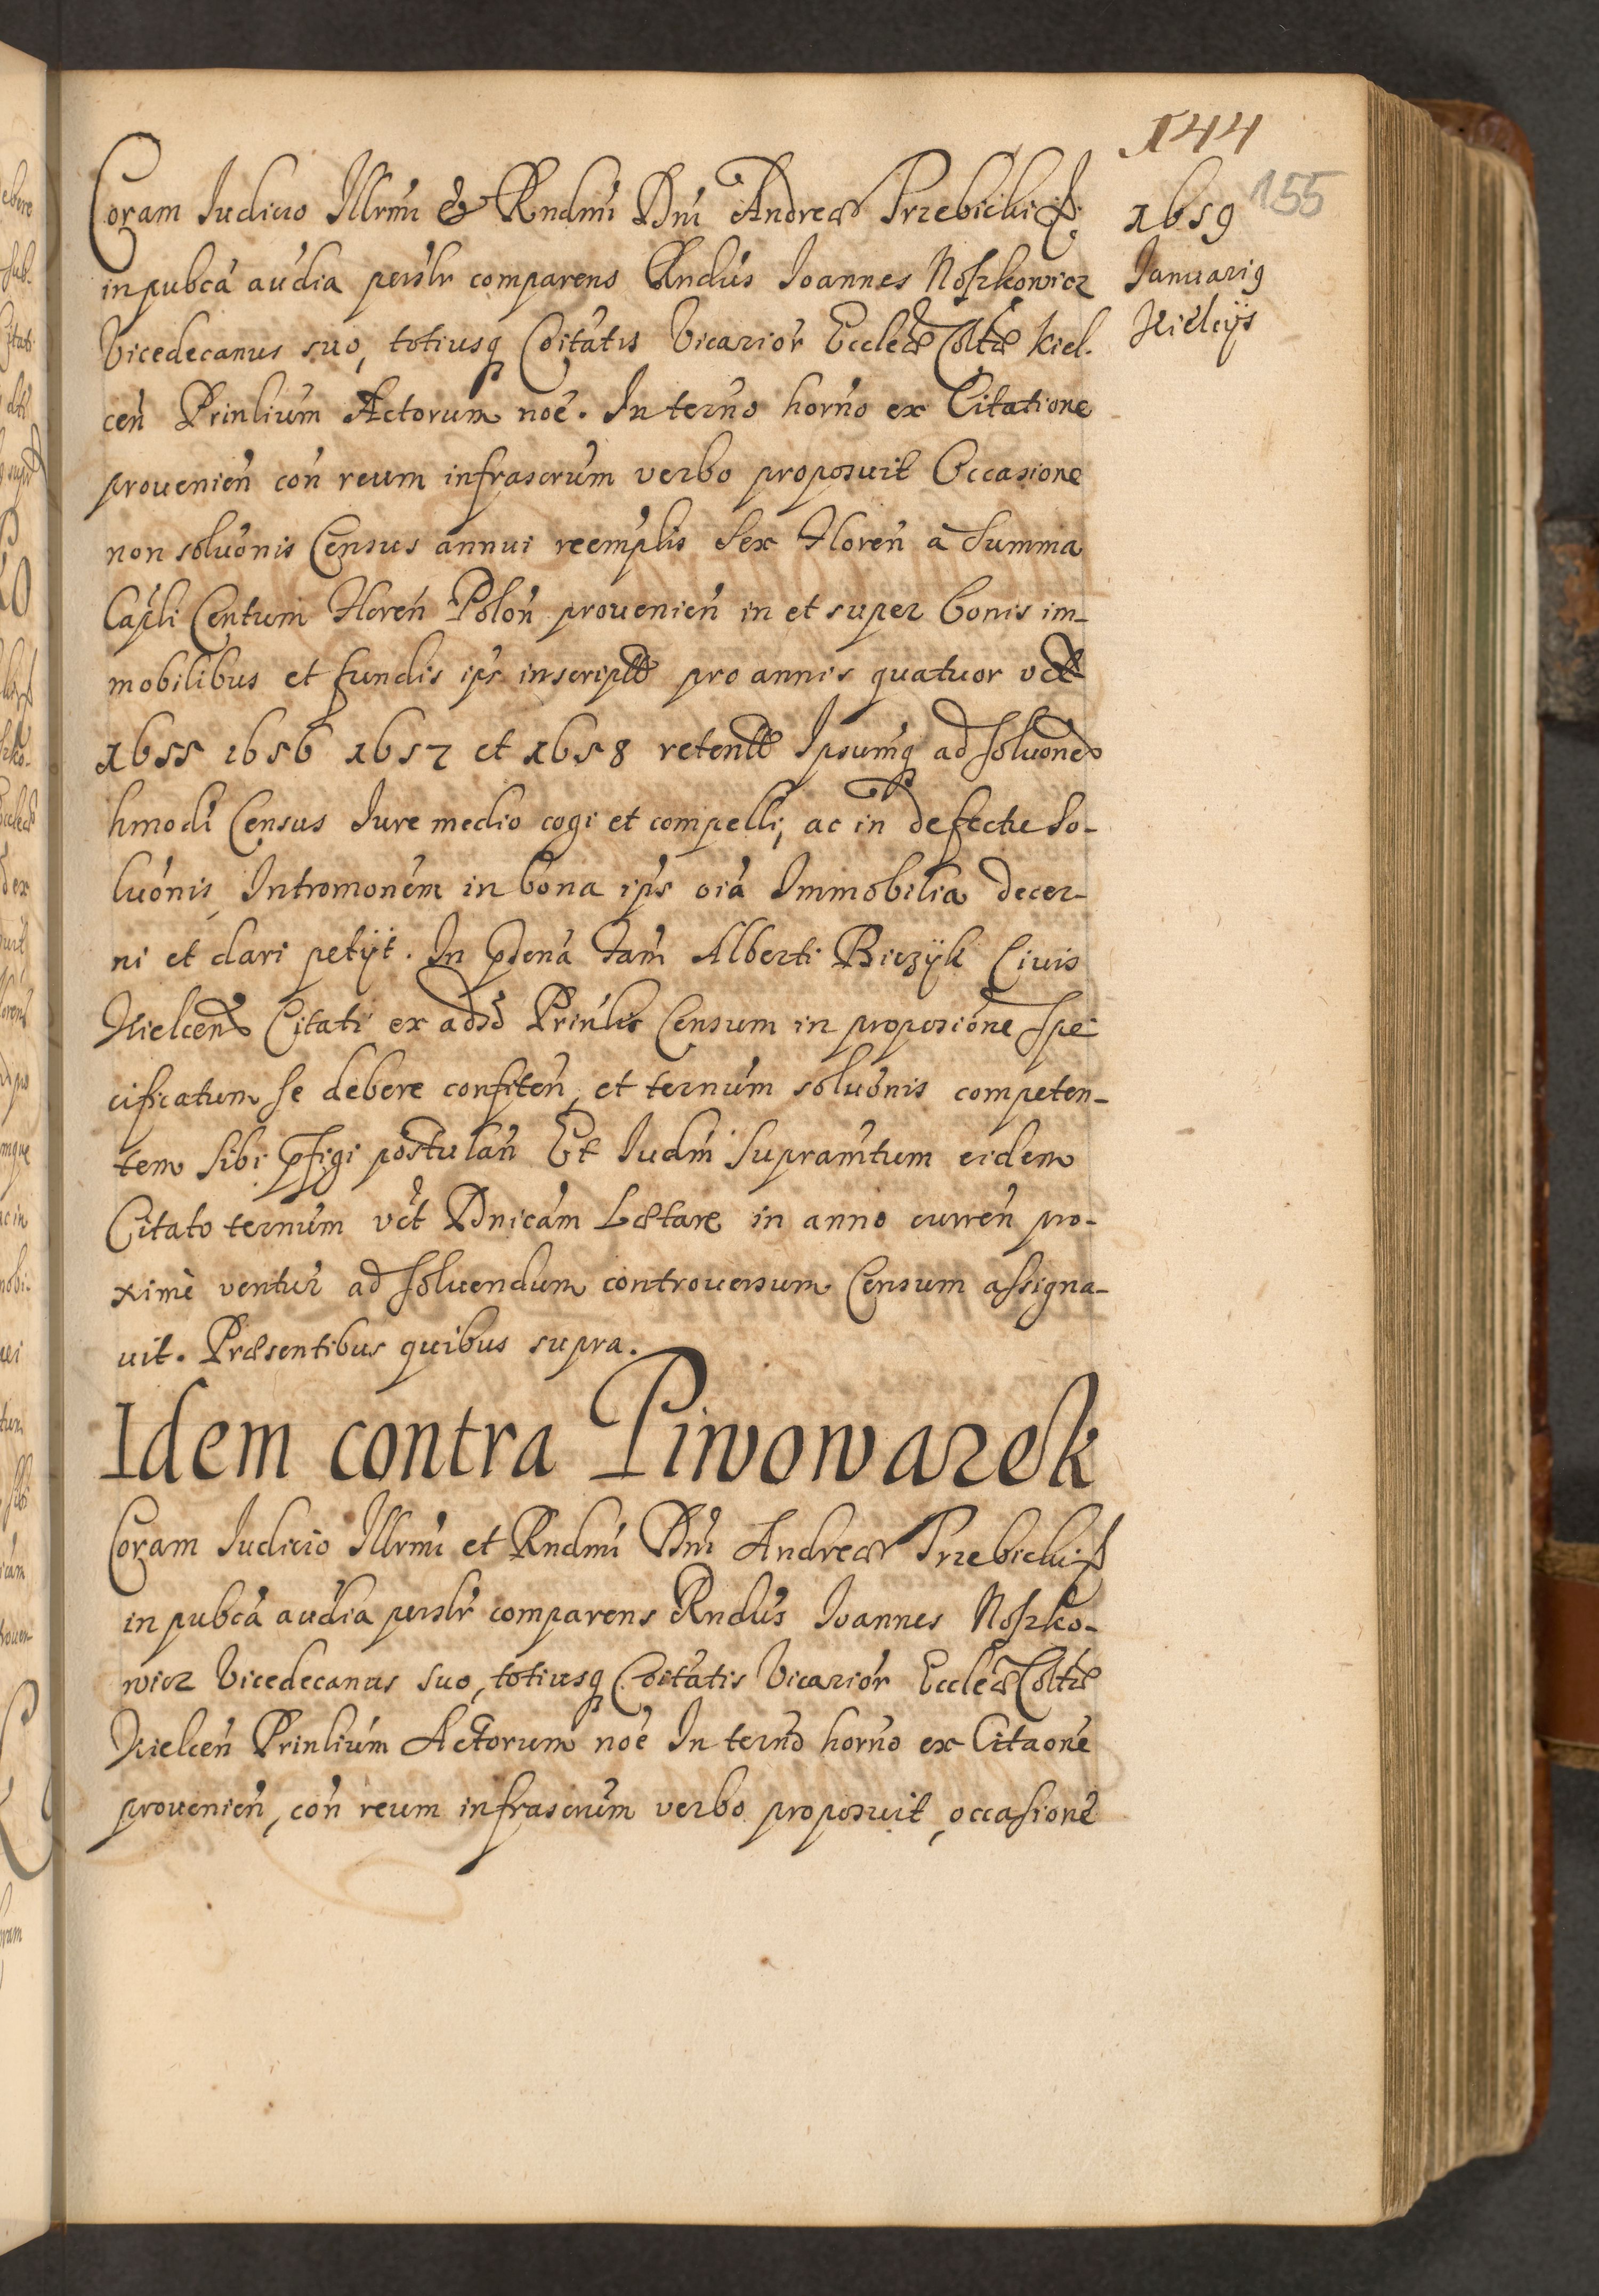 144
155
1659
Januarij
Kielcijs
Coram Iudicio Illrmi & Rndmi Dni Andreæ Trzebicki Ep:
in pubca audia persltr comparens Rndus Ioannes Noszkowicz
Vicedecanus suo, totiusq Coitatis Vicarior Eccleæ Coltæ Kiel.
cen Prinlium Actorum noe. In terno horno ex Citatione
prouenien con reum infrascrum verbo proposuit Occasione
non soluonis Census annui reemplis Sex Floren à Summa
Capli Centum Floren Polon prouenien in et super bonis im-
mobilibus et fundis ips inscript pro annis quatuor vct
1655 1656 1657 et 1658 retent Ipsumq ad soluone
hmodi Census Iure medio cogi et compelli, ac in defectu So-
luonis Intromonem in bona ips oia Immobilia decer-
ni et dari petijt. In pdena tam Alberti Biezyk Ciuis
Kielcen Citati ex aduo Prinlis Censum in proposione spe
cificatum se debere confiten, et ternum soluonis competen-
tem sibi pfigi postulan Et Iudm Supramtum eidem
Citato ternum vct Dnicam Lætare in anno curren pro-
ximè ventur ad soluendum controuersum Censum assigna-
uit. Præsentibus quibus supra.
Idem contra Piwowarek
Coram Iudicio Illrmi et Rndmi Dni Andreæ Trzebicki Ep
in pubca audia persltr comparens Rndus Ioannes Noszko-
wicz Vicedecanus suo, totiusq Coitatis Vicarior Eccleæ Coltæ
Kielcen Prinlium Actorum noe In terno horno ex Citaone
prouenien, con reum infrascrum verbo proposuit, occasione